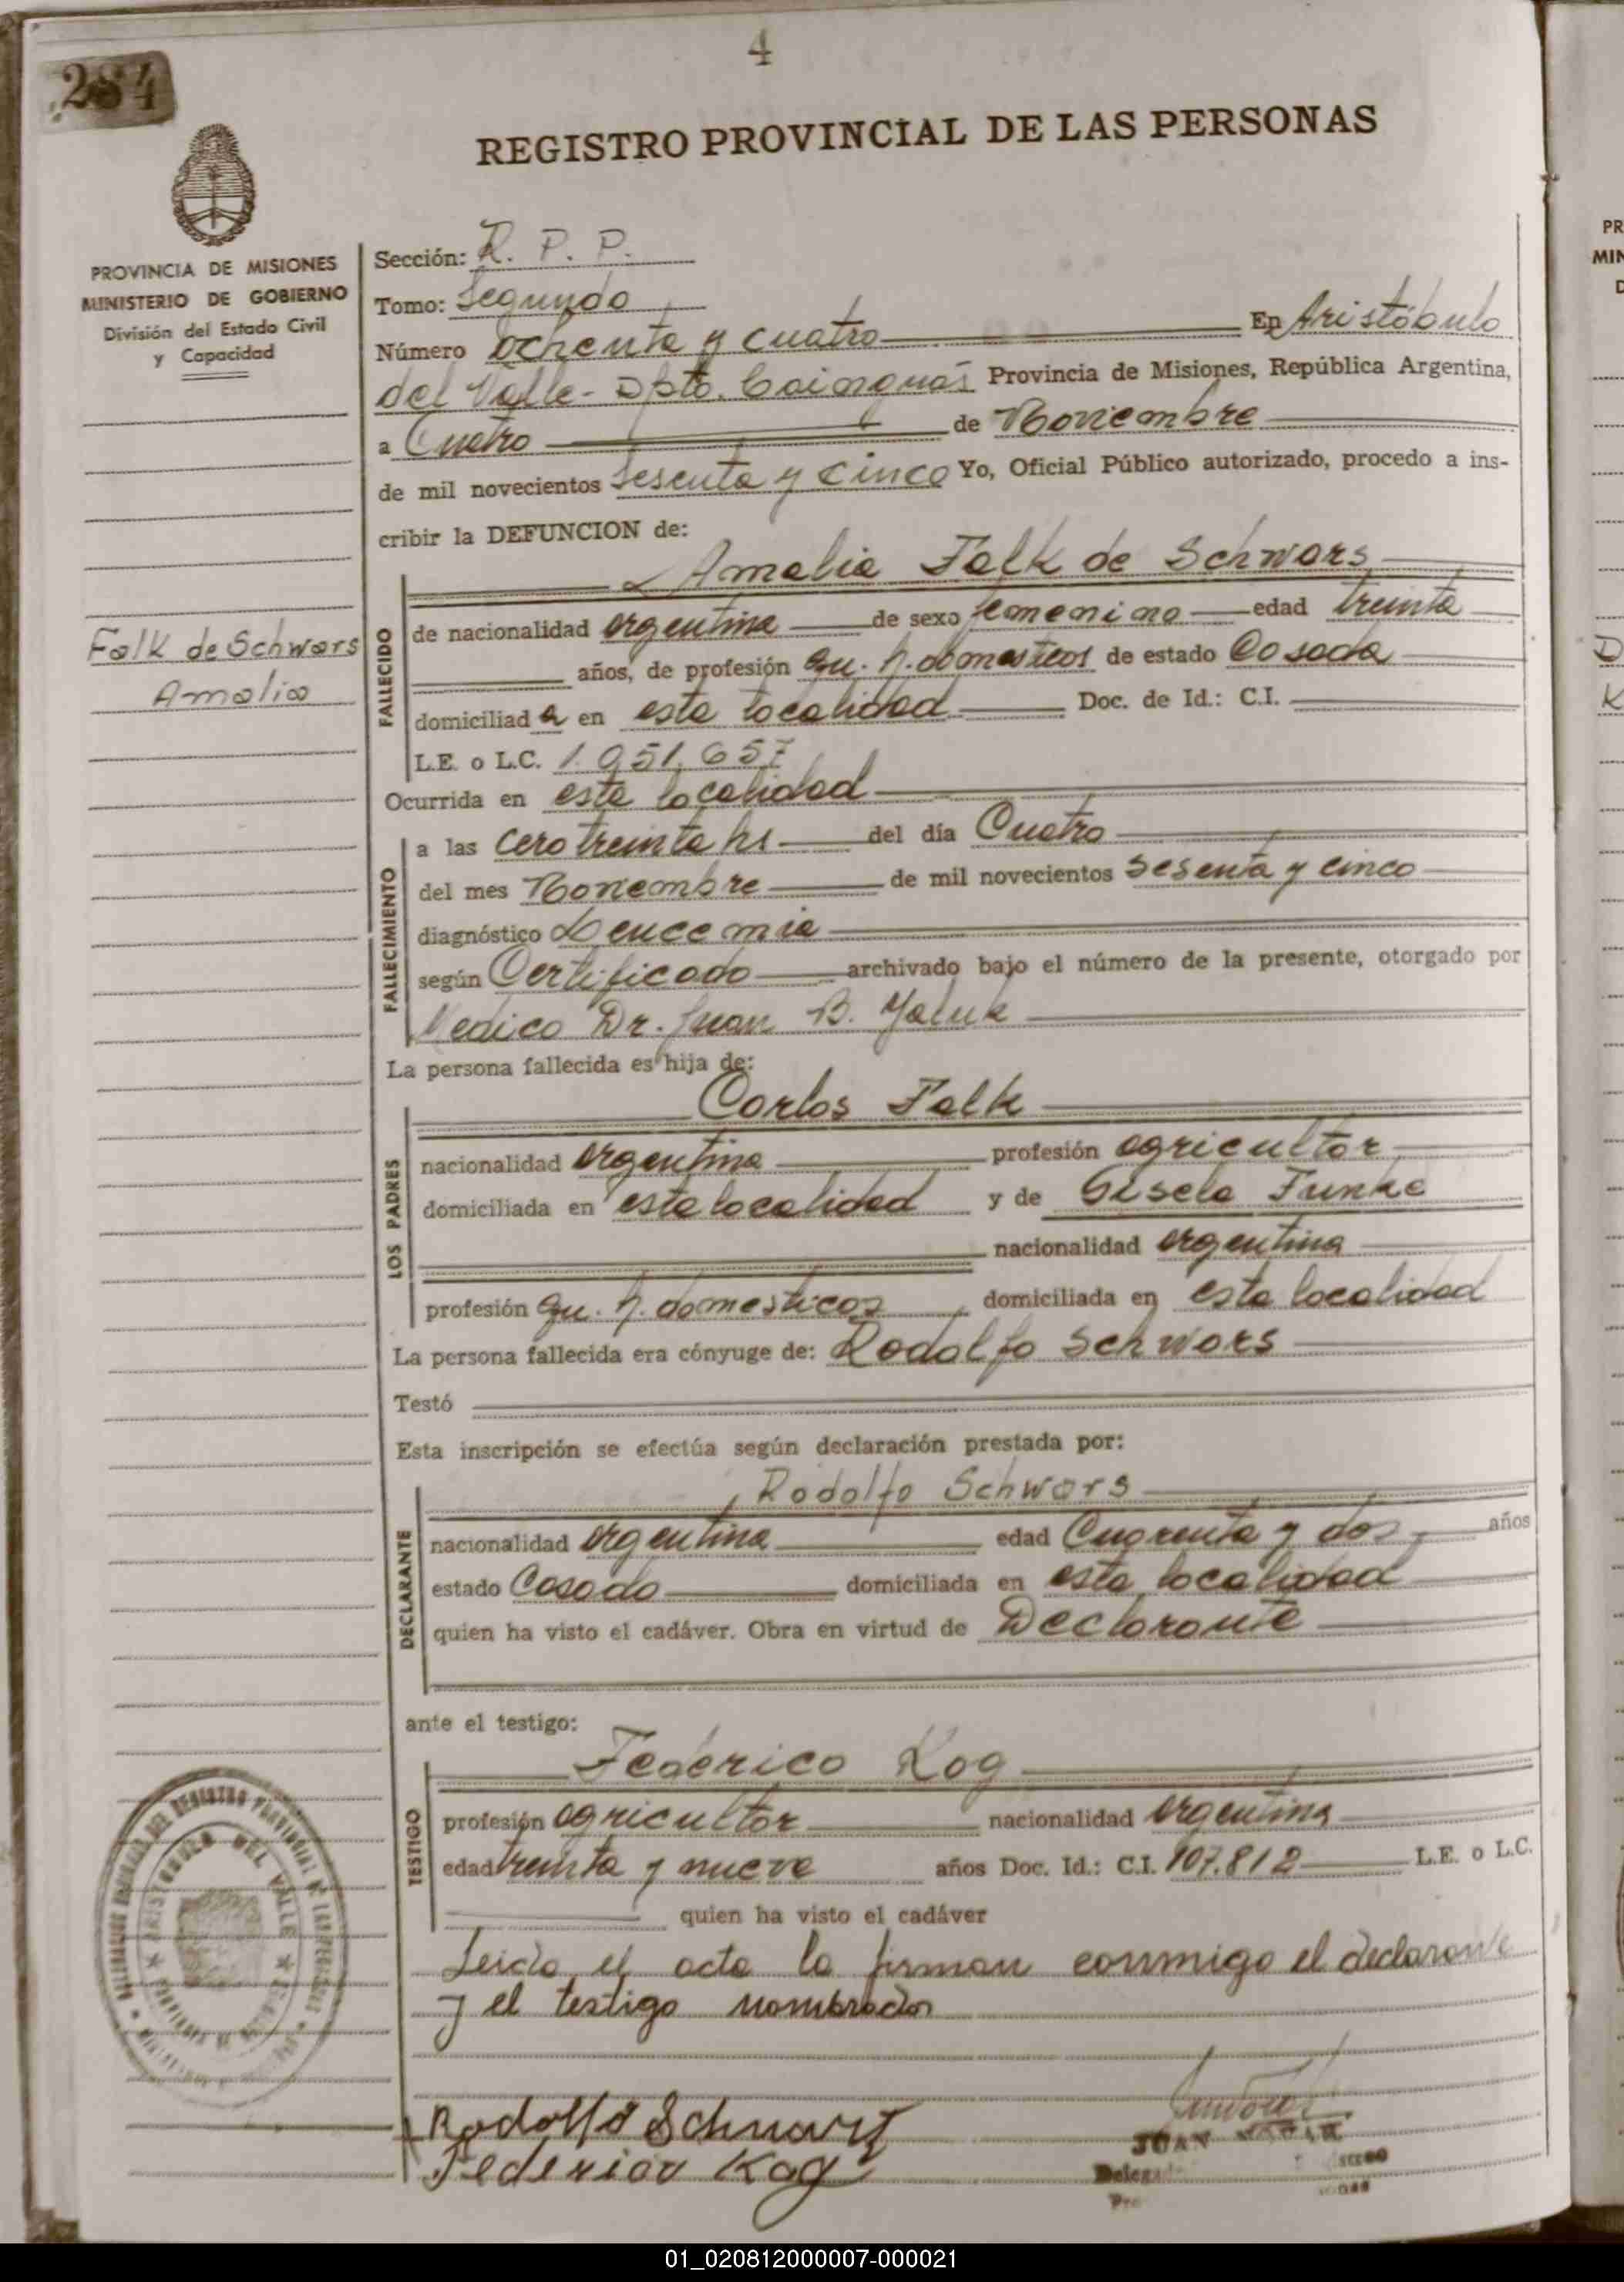 4
284
REGISTRO PROVINCIAL DE LAS PERSONAS
PROVINCIA DE MISIONES
MINISTERIO DE GOBIERNO
División del Estado Civil
y Capacidad
Sección: R. P. P.
Tomo: Segundo
Número Ochenta y cuatro En Aristóbulo
del Valle - Dpto. Cainguas Provincia de Misiones, República Argentina,
a Cuatro de Noviembre
de mil novecientos Sesenta y Cinco Yo, Oficial Público autorizado, procedo a ins-
cribir la DEFUNCION de:
Amalia Falk de Schwars
Falk de Schwars
Amalia
FALLECIDO
de nacionalidad argentina de sexo femenino edad treinta
años, de profesión qu. h. domesticos de estado Casada
domiciliad a en esta localidad Doc. de Id.: C.I.
L.E. o L.C. 1.951.657
Ocurrida en esta localidad
FALLECIMIENTO
a las cero treinta hs del día Cuatro
del mes Noviembre de mil novecientos Sesenta y cinco
diagnóstico Leucemia
según Certificado archivado bajo el número de la presente, otorgado por
Medico Dr. Juan B. Yaluk
La persona fallecida es hija de:
Carlos Falk
LOS PADRES
nacionalidad argentina profesión agricultor
domiciliada en esta localidad y de Gisela Funke
nacionalidad argentina
profesión qu. h. domesticos domiciliada en esta localidad
La persona fallecida era cónyuge de: Rodolfo Schwars
Testó
Esta inscripción se efectúa según declaración prestada por:
Rodolfo Schwars
DECLARANTE
nacionalidad argentina edad Cuarenta y dos años
estado Casado domiciliada en esta localidad
quien ha visto el cadáver. Obra en virtud de Declarante
ante el testigo:
Federico Kog
TESTIGO
profesión agricultor nacionalidad argentina
edad treinta y nueve años Doc. Id.: C.I. 107.812 L.E. o L.C.
quien ha visto el cadáver
Leida el acta la firman conmigo el declarante
y el testigo nombrados
ARISTOBULO DEL VALLE
Rodolfo Schwarz
Federico Kog
JUAN
01_020812000007-000021